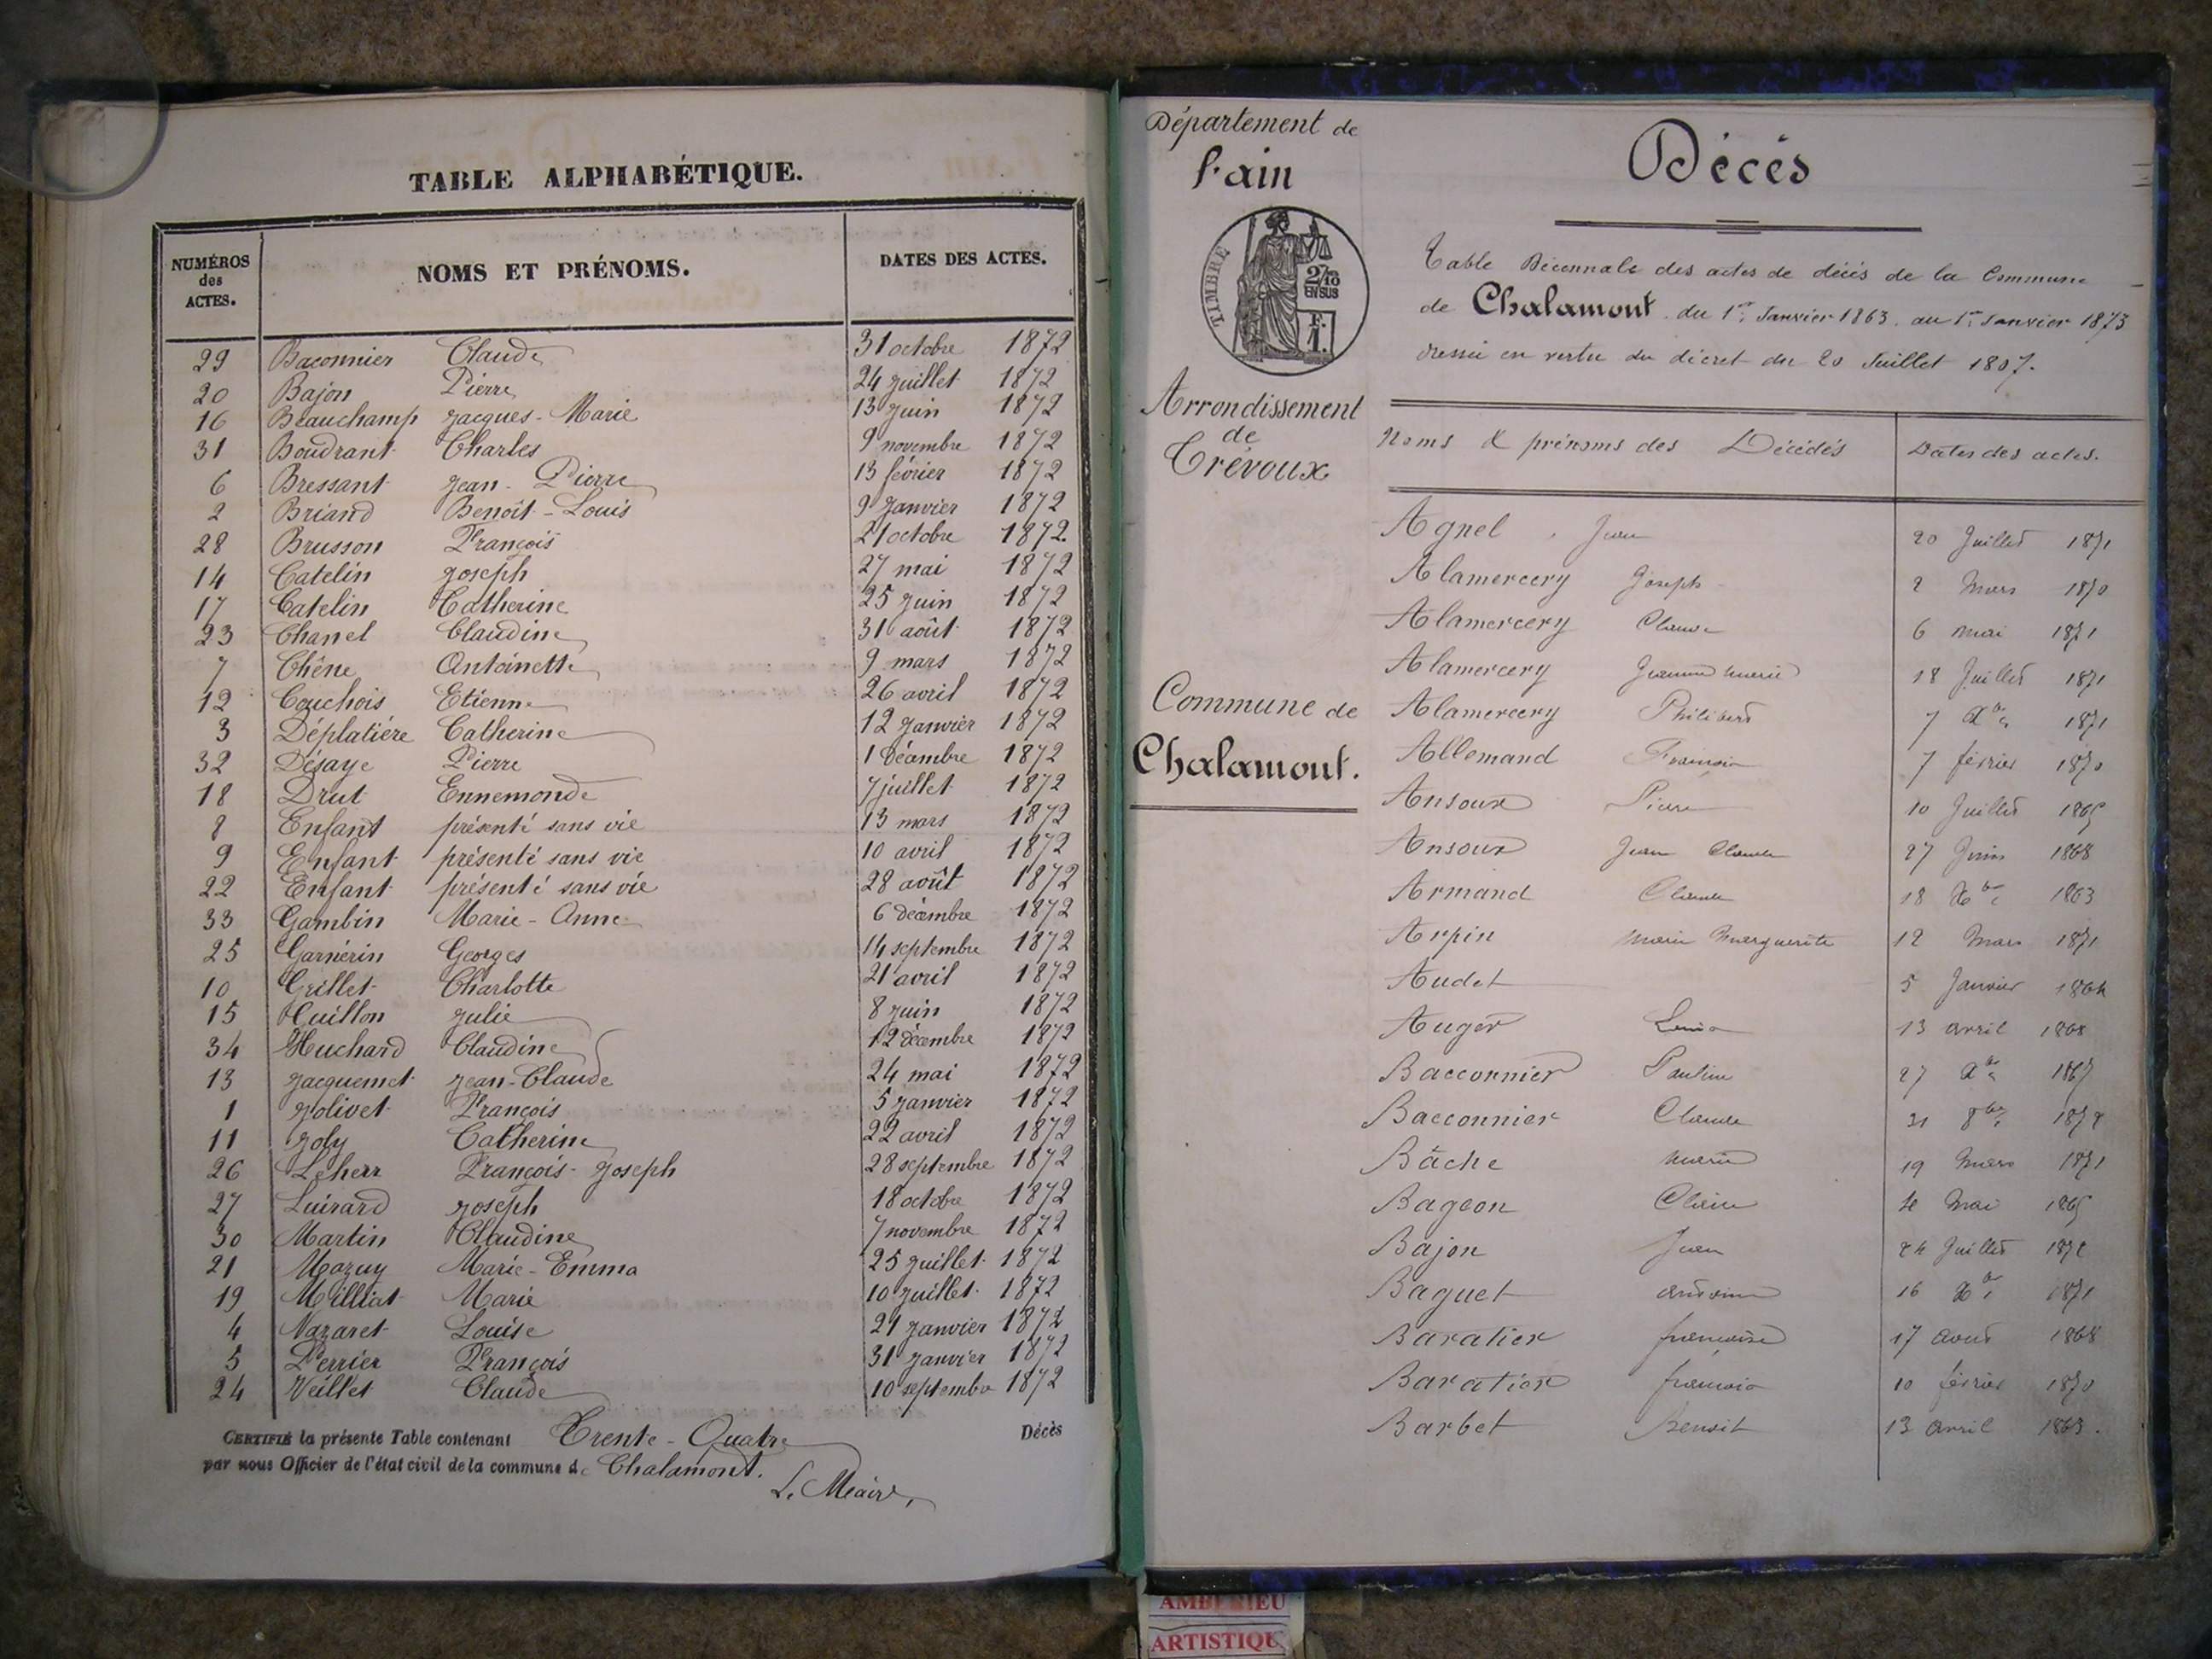 TABLE ALPHABÉTIQUE.
NUMÉROS des ACTES. NOMS ET PRÉNOMS. DATES DES ACTES.
29 Baconnier Claude 31 octobre 1872
20 Bajon Pierre 24 juillet 1872
16 Beauchamp Jacques-Marie 13 juin 1872
31 Boudrant Charles 9 novembre 1872
6 Bressant Jean-Pierre 13 février 1872
2 Briand Benoît-Louis 9 janvier 1872
28 Brusson François 21 octobre 1872.
14 Catelin Joseph 27 mai 1872
17 Catelin Catherine 25 juin 1872
23 Chanel Claudine 31 août 1872
7 Chêne Antoinette 9 mars 1872
12 Couchois Etienne 26 avril 1872
3 Déplatière Catherine 12 janvier 1872
32 Désaye Pierre 1 décembre 1872
18 Drut Ennemonde 7 juillet 1872
8 Enfant présenté sans vie 13 mars 1872
9 Enfant présenté sans vie 10 avril 1872
22 Enfant présenté sans vie 28 août 1872
33 Gambin Marie-Anne 6 décembre 1872
25 Garnérin Georges 14 septembre 1872
10 Grillet Charlotte 21 avril 1872
15 Cuillon Julie 8 juin 1872
34 Huchard Claudine 12 décembre 1872
13 Jacquemet Jean-Claude 24 mai 1872
1 Jolivet François 5 janvier 1872
11 Joly Catherine 22 avril 1872
26 Leherr François-Joseph 28 septembre 1872
27 Luirard Joseph 18 octobre 1872
30 Martin Claudine 7 novembre 1872
21 Mazuy Marie-Emma 25 juillet 1872
19 Milliat Marie 10 juillet 1872
4 Nazaret Louise 21 janvier 1872
5 Perrier François 31 janvier 1872
24 Veillet Claude 10 septembre 1872
CERTIFIÉ la présente Table contenant Trente-Quatre Décès
par nous Officier de l'état civil de la commune de Chalamont.
L. Maire,
Département de
l'ain
TIMBRE
2/10
EN SUS
F.
1.
Arrondissement
de
Trévoux
Commune de
Chalamont.
Décès
Table Décennale des actes de décès de la Commune
de Chalamont du 1er Janvier 1863 au 1er Janvier 1873
dressée en vertu du décret du 20 Juillet 1807.
Noms & prénoms des Décédés Dates des actes.
Agnel Jean 20 Juillet 1871
Alamercery Joseph 2 Mars 1870
Alamercery Claude 6 mai 1871
Alamercery Jeanne Marie 18 Juillet 1871
Alamercery Philibert 7 1871
Allemand François 7 février 1870
Ansoux Pierre 10 Juillet 1865
Ansoux Jean Claude 27 Juin 1868
Armand Claude 18 1863
Arpin Marie Marguerite 12 Mars 1871
Audet 5 Janvier 1864
Auger 13 avril 1868
Bacconnier Pauline 27 1867
Bacconnier Claude 31 8bre 1872
Bâche Marie 19 Mars 1871
Bageon Claire Mai 1865
Bajon Jean 24 Juillet 1872
Baguet 16 1871
Baratier françoise 17 aout 1868
Baratier françois 10 février 1870
Barbet Benoit 13 avril 1863.
AMBERIEU
ARTISTIQU